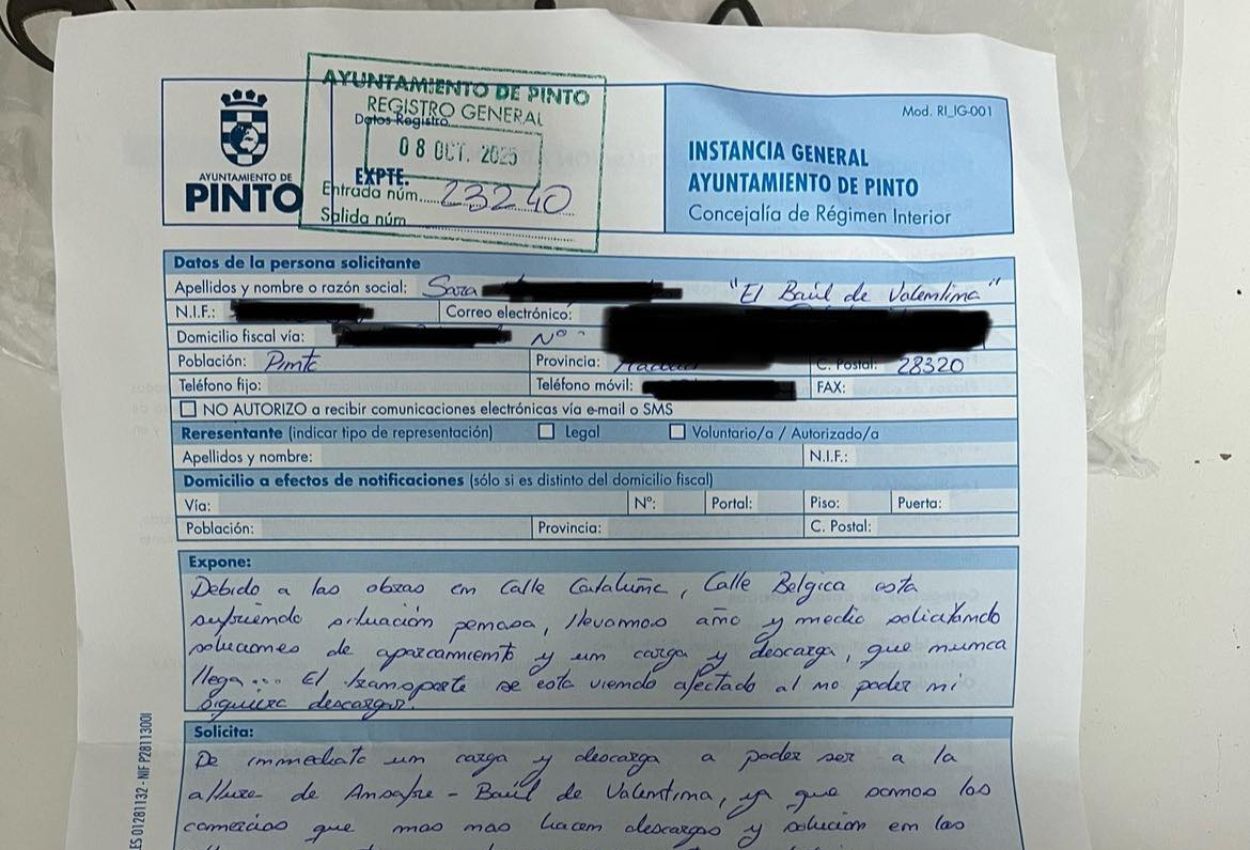 AYUNTAMIENTO DE PINTO
REGISTRO GENERAL
Datos Registro
08 OCT. 2025
EXPTE.
Entrada núm. 23240
Salida núm.
AYUNTAMIENTO DE
PINTO
Mod. RI_IG-001
INSTANCIA GENERAL
AYUNTAMIENTO DE PINTO
Concejalía de Régimen Interior
Datos de la persona solicitante
Apellidos y nombre o razón social: Sara "El Baúl de Valentina"
N.I.F.: Correo electrónico:
Domicilio fiscal vía: Nº
Población: Pinto Provincia: C. Postal: 28320
Teléfono fijo: Teléfono móvil: FAX:
NO AUTORIZO a recibir comunicaciones electrónicas vía e-mail o SMS
Reresentante (indicar tipo de representación) Legal Voluntario/a / Autorizado/a
Apellidos y nombre: N.I.F.:
Domicilio a efectos de notificaciones (sólo si es distinto del domicilio fiscal)
Vía: Nº: Portal: Piso: Puerta:
Población: Provincia: C. Postal:
Expone:
Debido a las obras en Calle Cataluña, Calle Belgica esta
sufriendo situación penosa, llevamos año y medio solicitando
soluciones de aparcamiento y un carga y descarga, que nunca
llega... El transporte se esta viendo afectado al no poder ni
siquiera descargar.
Solicita:
De inmediato un carga y descarga a poder ser a la
altura de - Baúl de Valentina, ya que somos los
comercios que mas mas hacen descargas y solución en las
ES 01281132 - NIF P2811300I